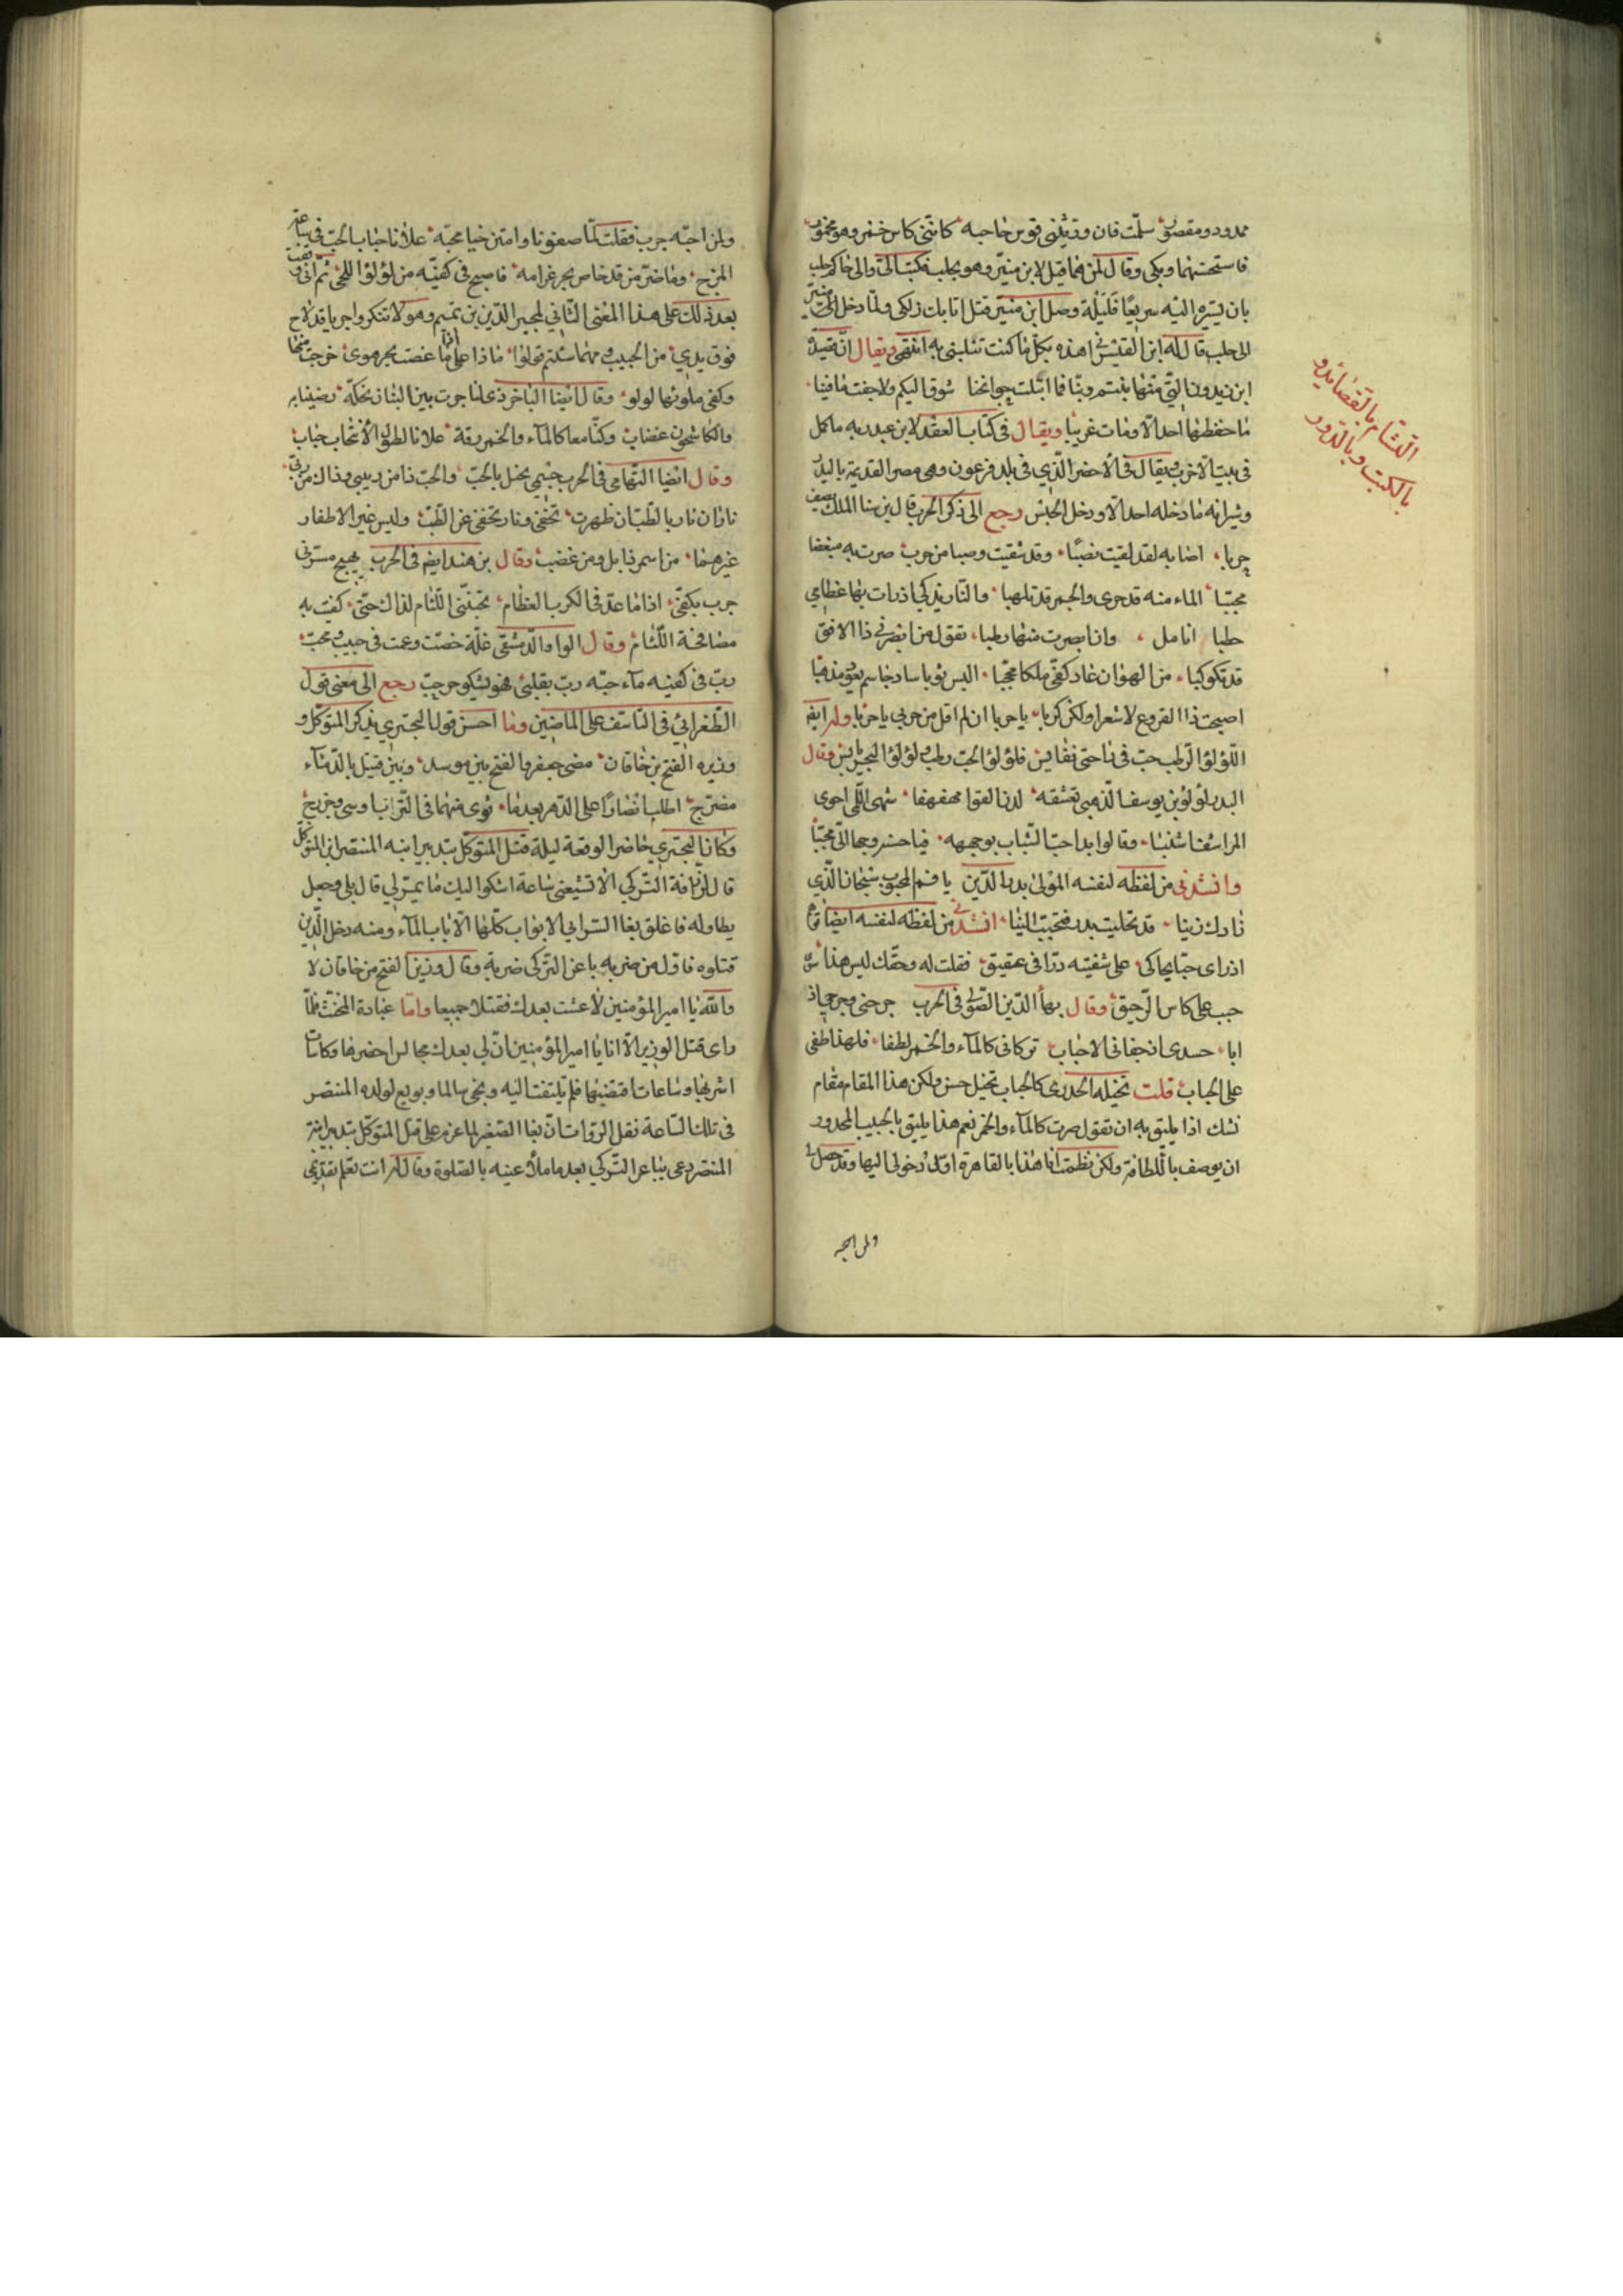 ممدود ومقصور سلمت فان وترتني قوس حاجبه كأنني كاس خمر وهو مخمور
فاستحسنهما وبكى وقال لمن هما قيل لابن منير وهو بحلب فكتب الى والى حاكم حلب
بان يسيره اليه سريعا فليلة وصل ابن منير قتل اتابك زنكي ولما دخل ابن منير
الى حلب قال له ابن القيسراني هذه بكل ما كنت تنكبني به انتهى ويقال ان قصيدة
ابن زيدون التي منها بنتم وبنا فما ابتلت جوانحنا شوقا اليكم ولا جفت مآقينا
ما حفظها احد الا ومات غريبا ويقال في كتاب العقد لابن عبد ربه ما كمل
في بيت الا خرب ويقال في الاخضر الذي في بلد فرعون وهي مصر القديمة بالبدر
وشيرانه ما دخله احد الا ودخل الحبس رجع الى ذكر الحرب قال ابن سنا الملك يصف
جربا اصابه لقد لقيت نصبا وقد شقيت وصبا من جرب صرت به مبغضا
محببا الماء منه قد جرى والجمر قد تلهبا والنار تذكي اذ رات بها عظامي
حطبا انامل وان ابصرت منها رطبا تقول من ابصر في ذا الافق
قد تكوكبا من الهوان عاد كفي ملكا محجبا البس ثوبا ساذجا سم يعود مذهبا
اصبحت ذا القروع لا شعرا ولكن كربا يا حربا ان لم اقل من جربي يا حربا وله ايضا
اللؤلؤ الرطب حب في راحتي نفايس فلؤلؤ الحب رطب ولؤلؤ البحر يابس وقال
البدر لؤلؤ بن يوسف الذهبي تعشقه لدن القوام مهفهفا شهي اللمى احوى
المراشف اشنبا وقالوا بدا حب الشباب بوجهه فيا حسن وجها الي محببا
وانشدني من لفظه لنفسه المولى بدر الدين يا فم المحبوب سبحان الذي
زادك زينا قد تحليت بدر فتحببت الينا انشدني من لفظه لنفسه ايضا
اذ راى حبا يحاكي على شفتيه درا في عقيق فقلت له وحقك ليس هذا سوى
حبب على كاس الرحيق وقال بها الدين الصولي في الحرب جرحني وجرحي اذ
ابا حسدي انحفاني الاحباب تركاني كالماء والخمر لطفا فلهذا طفى
على الحباب قلت تخيله الجدري كالحباب تخيل حسن ولكن هذا المقام مقام
نسك اذا يليق به ان تقول صرت كالماء والخمر نعم هذا يليق بالحبيب المجدور
ان يوصف باللطافة ولكن نظمت انا هذا بالقاهرة اول دخولي اليها وقد حصل لي
ولمن احبه
التشام بالقصائد و
بالكتب وبالدور
ولمن احبه جرب فقلت لما صفونا وامتزجنا محبة علانا حباب الحب في ساعة
المزج وما ضر من قد خاض بحر غرامه فاصبح في كفيه من لؤلؤ اللج ثم اني وقفت
بعد ذلك على هذا المعنى الثاني لمجير الدين بن تميم وهو لا تنكروا جربا قد لاح
فوق يدي من الحبيب ومهما شئتم قولوا ماذا على اذا ما غصت بحر هوى خرجت منها
وكفي ملؤها لولو وقال ايضا الباخرزي لنا جرب بين البنان نحكه رضينا به
والكاشحون غضاب وكنا معا كالماء والخمر رقة علانا لطول الامتحاب حباب
وقال ايضا التهامي في الحرب جسمي نحل بالحب والحب ذا من دبيبي وذاك من ربي
ناران نار بالطب ان ظهرت تخفى ونار تخفى عن الطب وليس غير الاظفار
غيرهما من اسمر ذابل ومن غضب وقال بن هند ايضا في الحرب يهيج مسرتي
جرب بكفي اذا ما عد في الكرب العظام تجنبني اللئام لذاك حتى كفيت به
مصافحة اللئام وقال الواوا الدمشقي علة خصت وعمت في حبيب ومحب
رب في كفيه ماء حبه رب بقلبي فهو يشكو حر حب رجع الى معنى قول
الطغرائي في التاسف على الماضين وما احسن قول البحتري يذكر المتوكل و
وزيره الفتح بن خاقان مضى جعفر والفتح بين موسد وبين قتيل بالدماء
مضرج اطلب انصارا على الدهر بعدما ثوى منهما في الترب اوسي وخزرجي
وكان البحتري حاضر الوقعة ليلة قتل المتوكل بتدبير ابنه المنتصر ابن المتوكل
قال لزرافة التركي الا تشيعني ساعة اشكو اليك ما يمر لي قال بلى وجعل
يطاوله فاغلق بغا الشرابي الابواب كلها الا باب الماء ومنه دخل الذين
قتلوه فاول من ضربه باغر التركي ضربة وقال وزيره الفتح بن خاقان لا
والله يا امير المؤمنين لا عشت بعدك فقتلا جميعا واما عبادة المخنث فلما
راى قتل الوزير الا انا يا امير المؤمنين ان لي بعدك مجالس احضرها وكاسات
اشربها وساعات اقضيها فلم يلتفت اليه ونجى سالما وبويع لولده المنتصر
في تلك الساعة نقل الرواة ان بغا الصغير لما عزم على قتل المتوكل بتدبير ابنه
المنتصر دعى بباغر التركي بعد ما ملأ عينه بالصلوة وقال له انت تعلم تقديمي